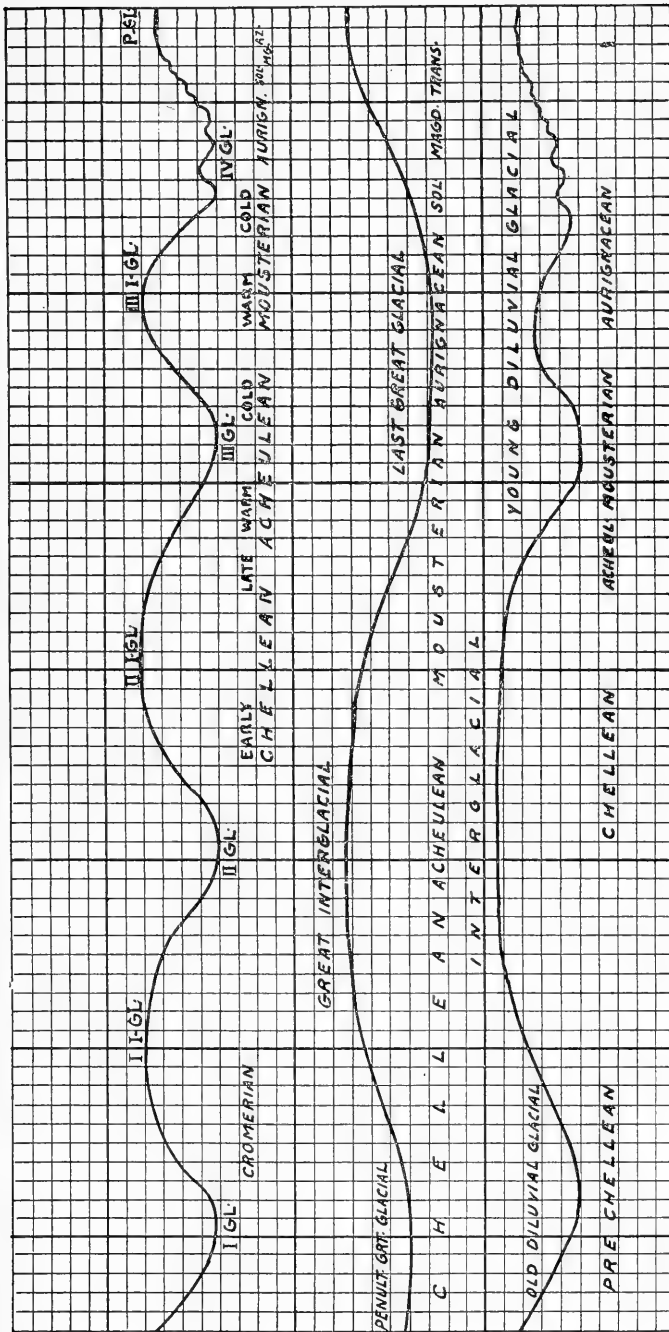 P-GL.
I GL.
I I-GL.
II GL.
II I-GL.
III GL.
III I-GL.
IV GL.
CROMERIAN
EARLY
LATE WARM COLD
WARM COLD
CHELLEAN ACHEULEAN
MOUSTERIAN AURIGN. SOL. MG. AZ.
GREAT INTERGLACIAL
LAST GREAT GLACIAL
PENULT. GRT. GLACIAL
CHELLEAN ACHEULEAN MOUSTERIAN AURIGNACEAN SOL. MAGD. TRANS.
INTERGLACIAL
YOUNG DILUVIAL GLACIAL
OLD DILUVIAL GLACIAL
PRE CHELLEAN CHELLEAN ACHEUL. MOUSTERIAN AURIGNACEAN